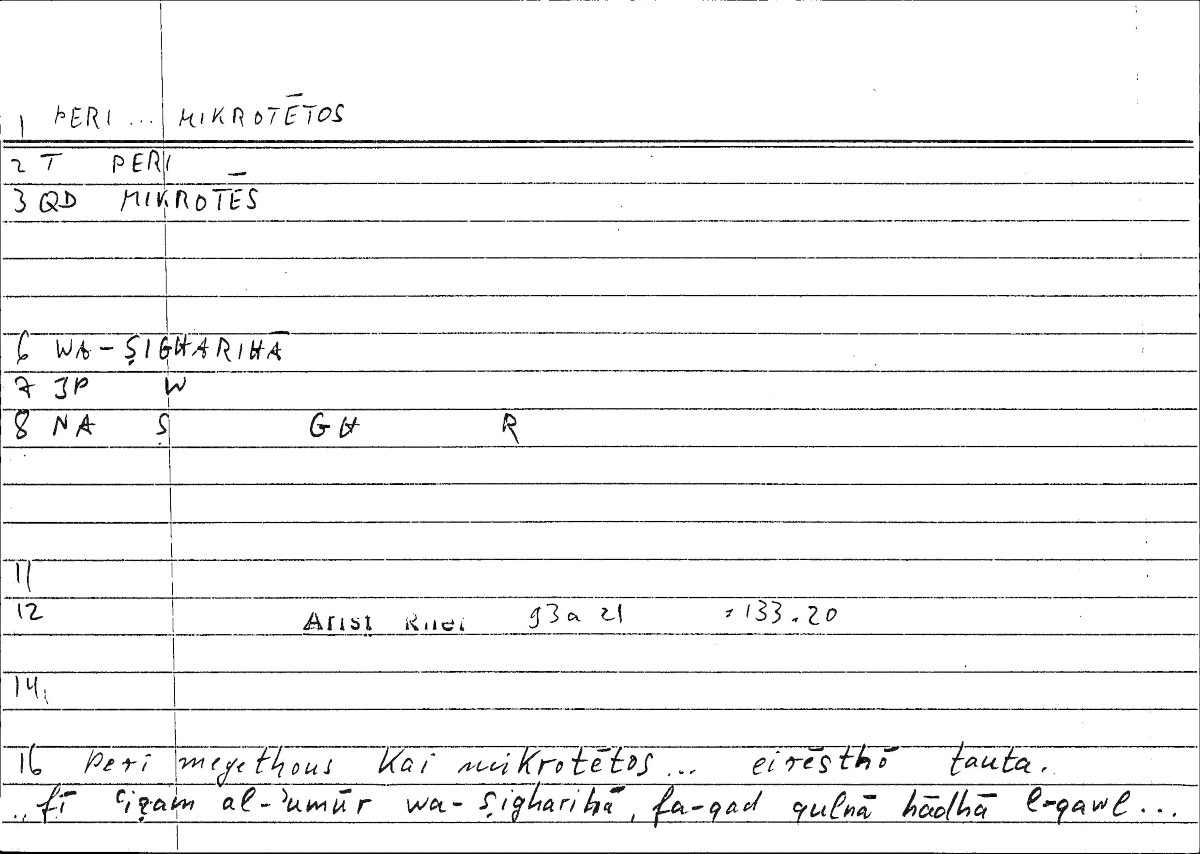 1 PERI ... MIKROTĒTOS
2 T PERI
3 QD MIKROTĒS
6 WA-ṢIGHARIHĀ
7 3P W
8 NA Ṣ GH R
11
12 Arist Rhet 93a21 =133.20
14
16 peri megethous kai mikrotētos... eirēsthō tauta.
..fī ʿiẓam al-ʾumūr wa-ṣigharihā, fa-qad qulnā hādhā l-qawl...